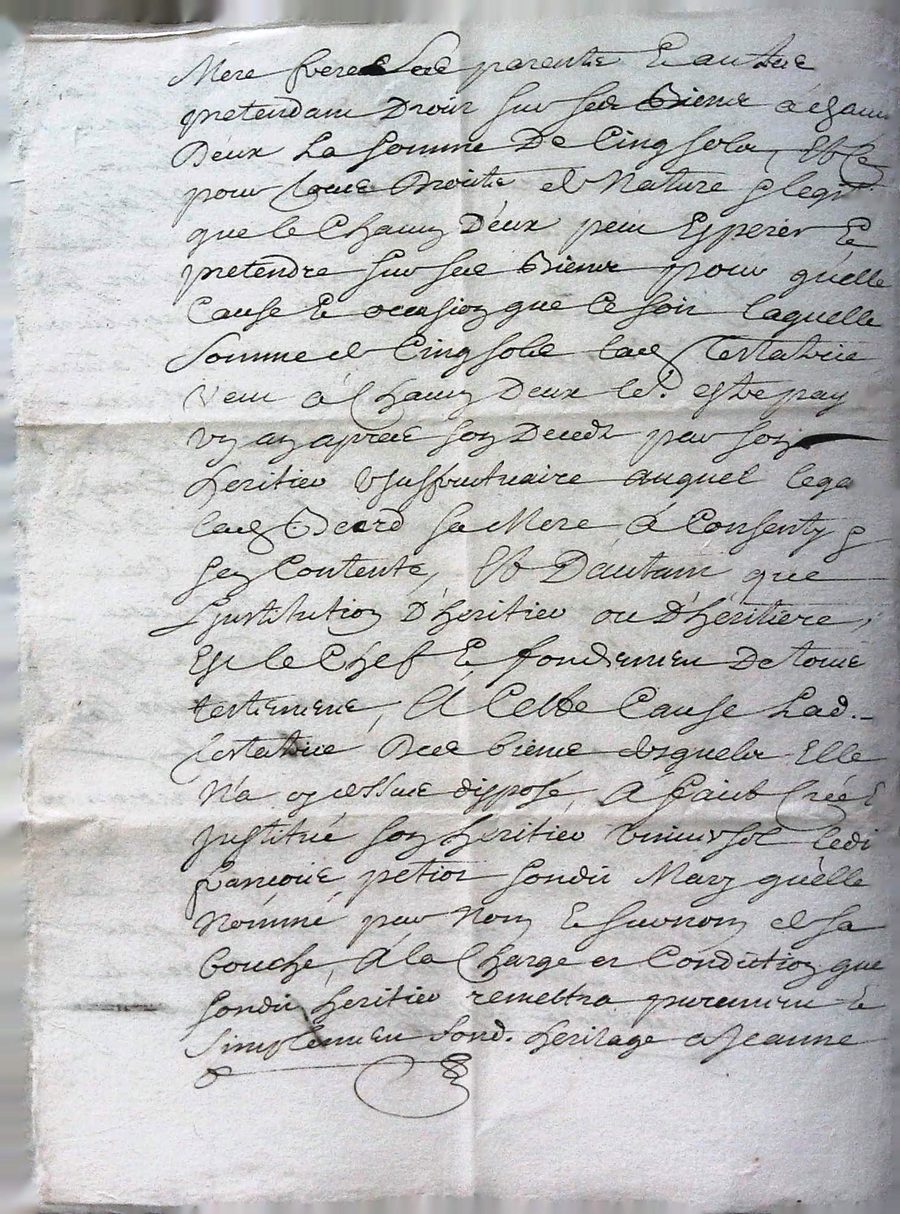 Mere freres Ses parents Et autres
pretendam Droit Sur Ses Biens a Chacun
D'eux La Somme De Cinq Sols, Et Ce
pour tous Droits et Nature
que le Chacun D'eux peut Esperer Et
pretendre Sur Ses Biens pour quelle
Cause Et occasion que Ce Soit laquelle
Somme de Cinq Sols lad Testatrice
Veut a Chacun D'eux estre pay
un an apres Son Deceds par Son
heritier Usuffruttuaire auquel lega
lad sa Mere a Consenty
Sen Contente, Et D'autant que
L'institution D'heritier ou D'héritiere,
Est le Chef Et fondemen De tous
testemens, A Cette Cause Lad.
Testatrice Des biens desquels Elle
N'a cy dessus disposé, A faict Créé E
Institué Son heritier Universel ledi
françois petiot Sondit Mary quelle
Nommé par Nom Et Surnom de Sa
bouche, A la Charge et Condition que
Sondit heritier remettra puremen Et
Simplemen Sond. heritage a Jeanne